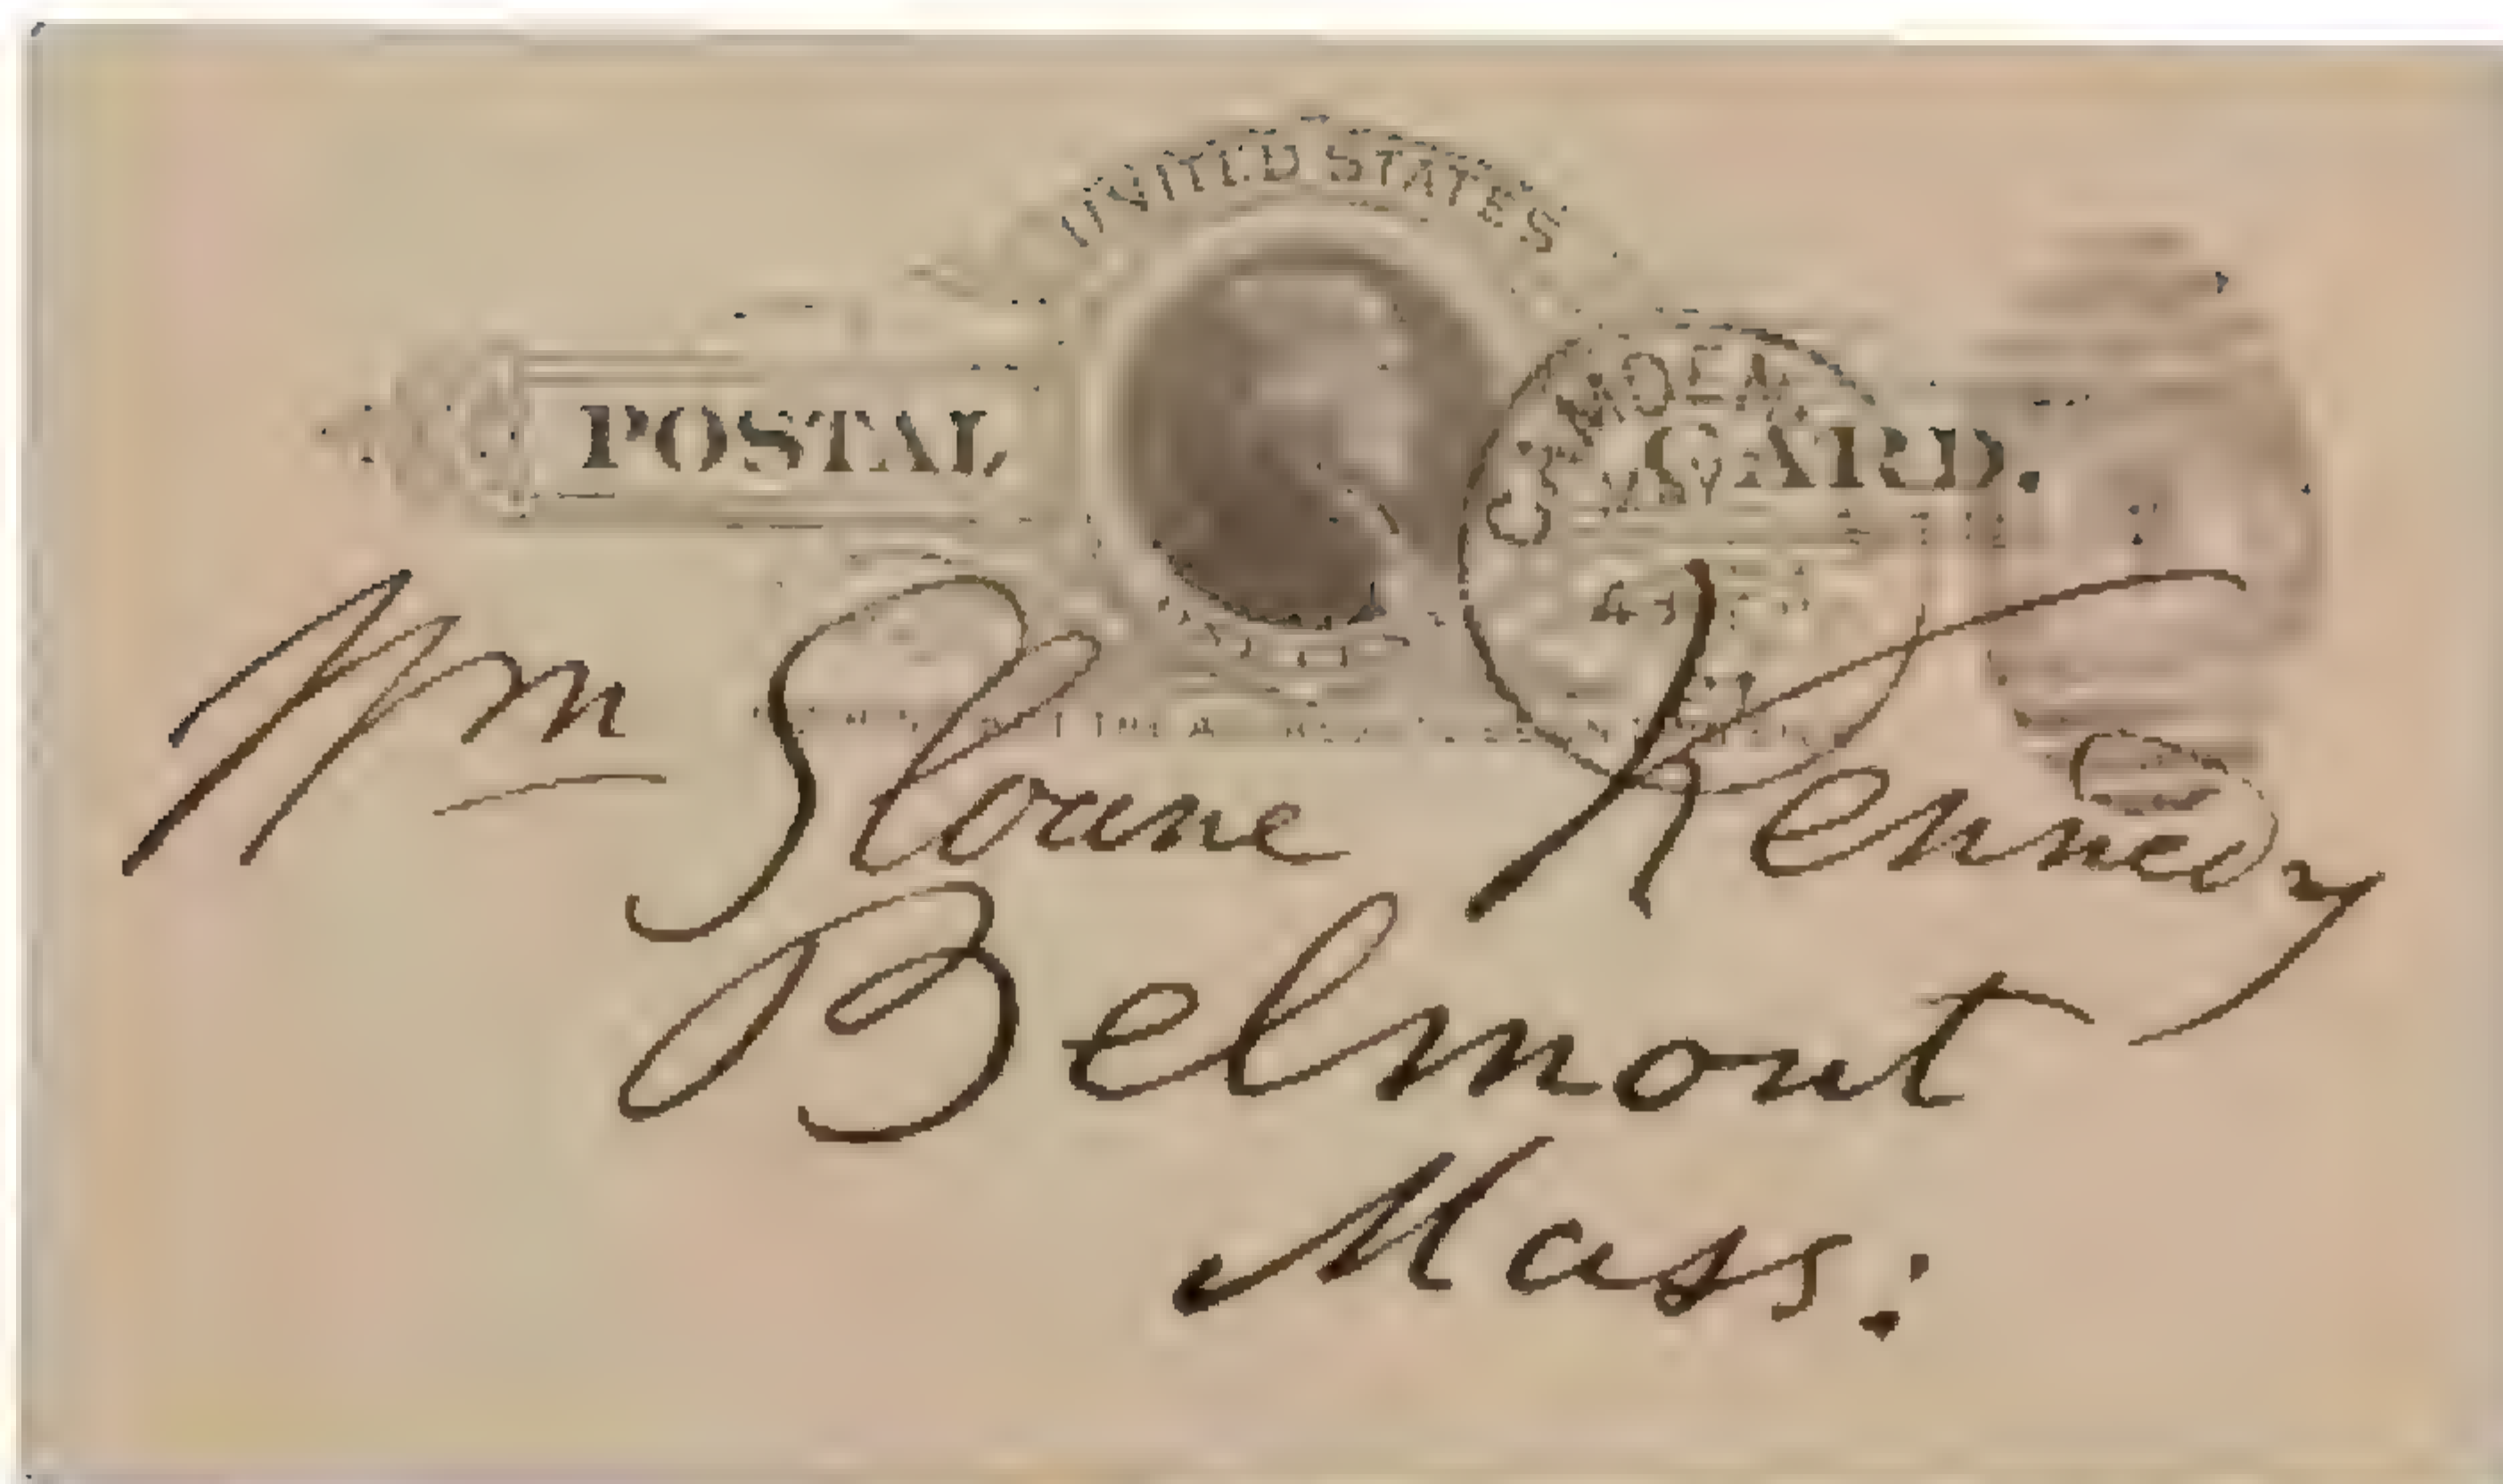 UNITED STATES
POSTAL CARD.
CAMDEN
Wm Sloane Kennedy
Belmont
Mass: